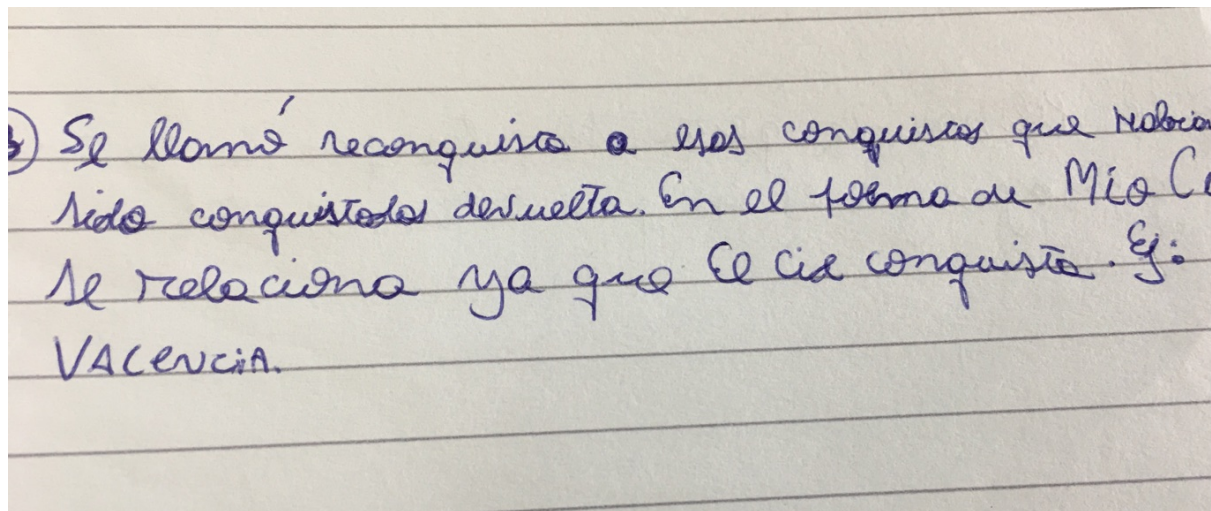 Se llamó reconquista a esas conquistas que habia
sido conquistados devuelta. En el poema de Mío
se relaciona ya que El Cid conquista. Ej:
VALENCIA.